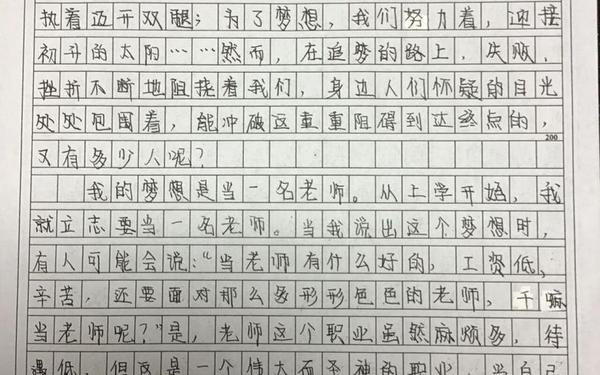 执着迈开双腿；为了梦想，我们努力着，迎接
初升的太阳……然而，在追梦的路上，失败、
挫折不断地阻挠着我们，身边人们怀疑的目光
处处包围着，能冲破这重重阻碍得到达终点的，
200
又有多少人呢？
我的梦想是当一名老师。从上学开始，我
就立志要当一名老师。当我说出这个梦想时，
有人可能会说：“当老师有什么好的，工资低、
辛苦，还要面对那么多形形色色的老师，干嘛
当老师呢？”是，老师这个职业虽然麻烦多，待
遇低，但这是一个伟大而圣神的职业，当自己